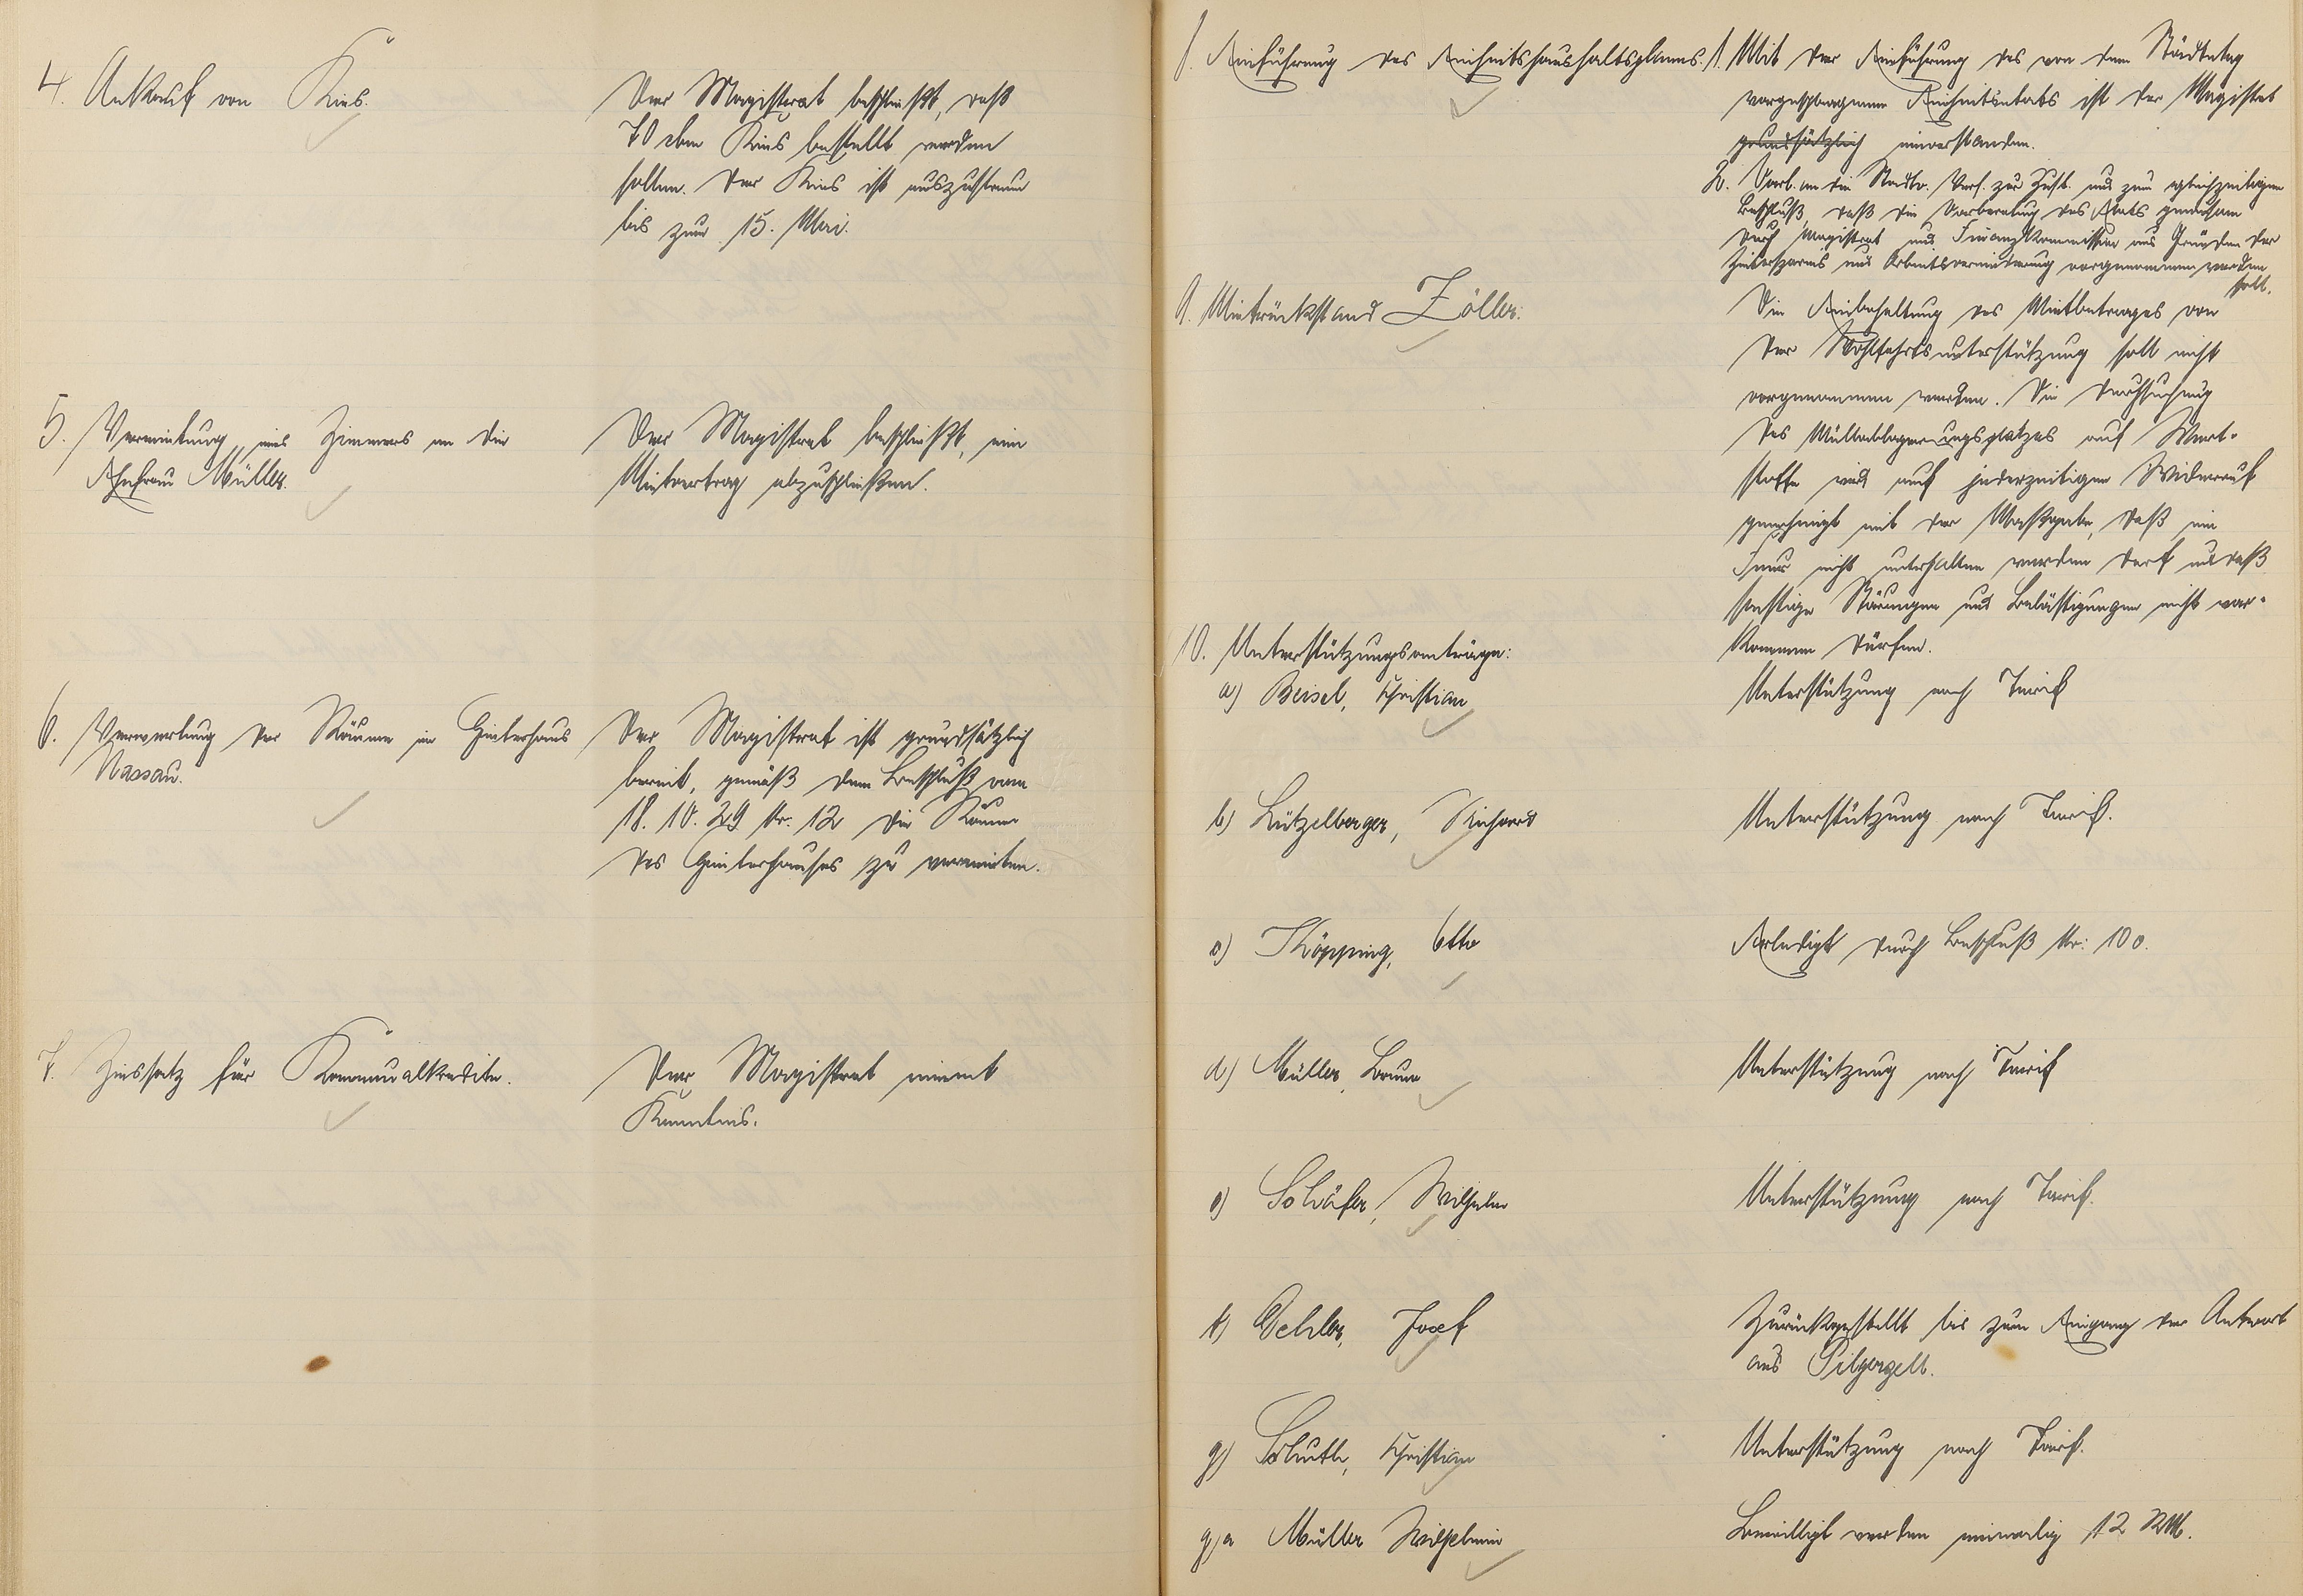 4. Ankauf von Kies.
Der Magistrat beschließt, daß
70 cbm Kies bestellt werden
sollen. Der Kies ist
bis zum 15. Mai.
5. Vermietung eines Zimmers an die
Ehefrau Müller.
Der Magistrat beschließt, ein
Mietvertrag abzuschließen.
6. Verwertung der Räume im Hinterhaus
Nassau.
Der Magistrat ist grundsätzlich
bereit, gemäß dem Beschluß vom
18. 10. 29 Nr. 12 die Räume
des Hinterhauses zu vermieten.
7. Zinssatz für Kommunalkredite.
Der Magistrat nimmt
Kenntnis.
8. Einführung des Einheitshaushaltsplanes.
1. Mit der Einführung des von dem Städtetag
vorgeschlagenen Einheitsetats ist der Magistrat
grundsätzlich einverstanden.
2. Vorl. an die Stadtv. Vers. zur Zust. und zum gleichzeitigen
Beschluß, daß die Vorberatung des Etats gemeinsam
durch Magistrat und Finanzkommission aus Gründen der
Zeitersparnis und Arbeitsverminderung vorgenommen werden
soll.
9. Mietrückstand Zöller.
Die Einbehaltung des Mietbetrages von
der Wohlfahrtsunterstützung soll nicht
vorgenommen werden. Die Durchsuchung
des Müllablagerungsplatzes auf Wert-
stoffe wird auf jederzeitigen Widerruf
genehmigt mit der Maßgabe, daß ein
Feuer nicht unterhalten werden darf und daß
sonstige Störungen und Belästigungen nicht vor-
kommen dürfen.
10. Unterstützungsanträge:
a) Beisel, Christian
Unterstützung nach Tarif
b) Lützelberger, Richard
Unterstützung nach Tarif.
c) Köpping, Otto
Erledigt durch Beschluß Nr: 10 o.
d) Müller, Bruno
Unterstützung nach Tarif
e) Schäfer, Wilhelm
Unterstützung nach Tarif.
f) Oehler, Josef
Zurückgestellt bis zum Eingang der Antwort
aus Pilgerzell.
g) Christian
Unterstützung nach Tarif.
g) a Müller Wilhelmine
Bewilligt werden einmalig 12 RM.